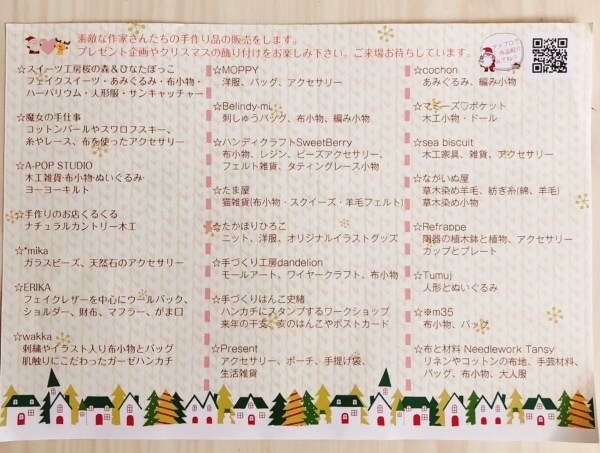 素敵な作家さんたちの手作り品の販売をします。
プレゼント企画やクリスマスの飾り付けをお楽しみ下さい。ご来場お待ちしています。
アメブロで
作品紹介
☆スイーツ工房桜の森&ひなたぼっこ
フェイクスイーツ・あみぐるみ・布小物・
ハーバリウム・人形服・サンキャッチャー
☆魔女の手仕事
コットンパールやスワロフスキー、
糸やレース、布を使ったアクセサリー
☆A-POP STUDIO
木工雑貨・布小物・ぬいぐるみ・
ヨーヨーキルト
☆手作りのお店くるくる
ナチュラルカントリー木工
☆*mika
ガラスビーズ、天然石のアクセサリー
☆ERIKA
フェイクレザーを中心にウールバック、
ショルダー、財布、マフラー、がま口
☆wakka
刺繍やイラスト入り布小物とバッグ
肌触りにこだわったガーゼハンカチ
☆MOPPY
洋服、バッグ、アクセサリー
☆Belindy-mi
刺しゅうバッグ、布小物、編み小物
☆ハンディクラフトSweetBerry
布小物、レジン、ビーズアクセサリー、
フェルト雑貨、タティングレース小物
☆たま屋
猫雑貨(布小物・スクイーズ・羊毛フェルト)
☆たかほりひろこ
ニット、洋服、オリジナルイラストグッズ
☆手づくり工房dandelion
モールアート、ワイヤークラフト、布小物
☆手づくりはんこ史緒
ハンカチにスタンプするワークショップ
来年の干支、亥のはんこやポストカード
☆Present
アクセサリー、ポーチ、手提げ袋、
生活雑貨
☆cochon
あみぐるみ、編み小物
☆マミーズ♡ポケット
木工小物・ドール
☆sea biscuit
木工家具、雑貨、アクセサリー
☆ながいぬ屋
草木染め羊毛、紡ぎ糸(綿、羊毛)
草木染め小物
☆Refrappe
陶器の植木鉢と植物、アクセサリー
カップとプレート
☆Tumuj
人形とぬいぐるみ
☆※m35
布小物、バッグ
☆布と材料 Needlework Tansy
リネンやコットンの布地、手芸材料、
バッグ、布小物、大人服